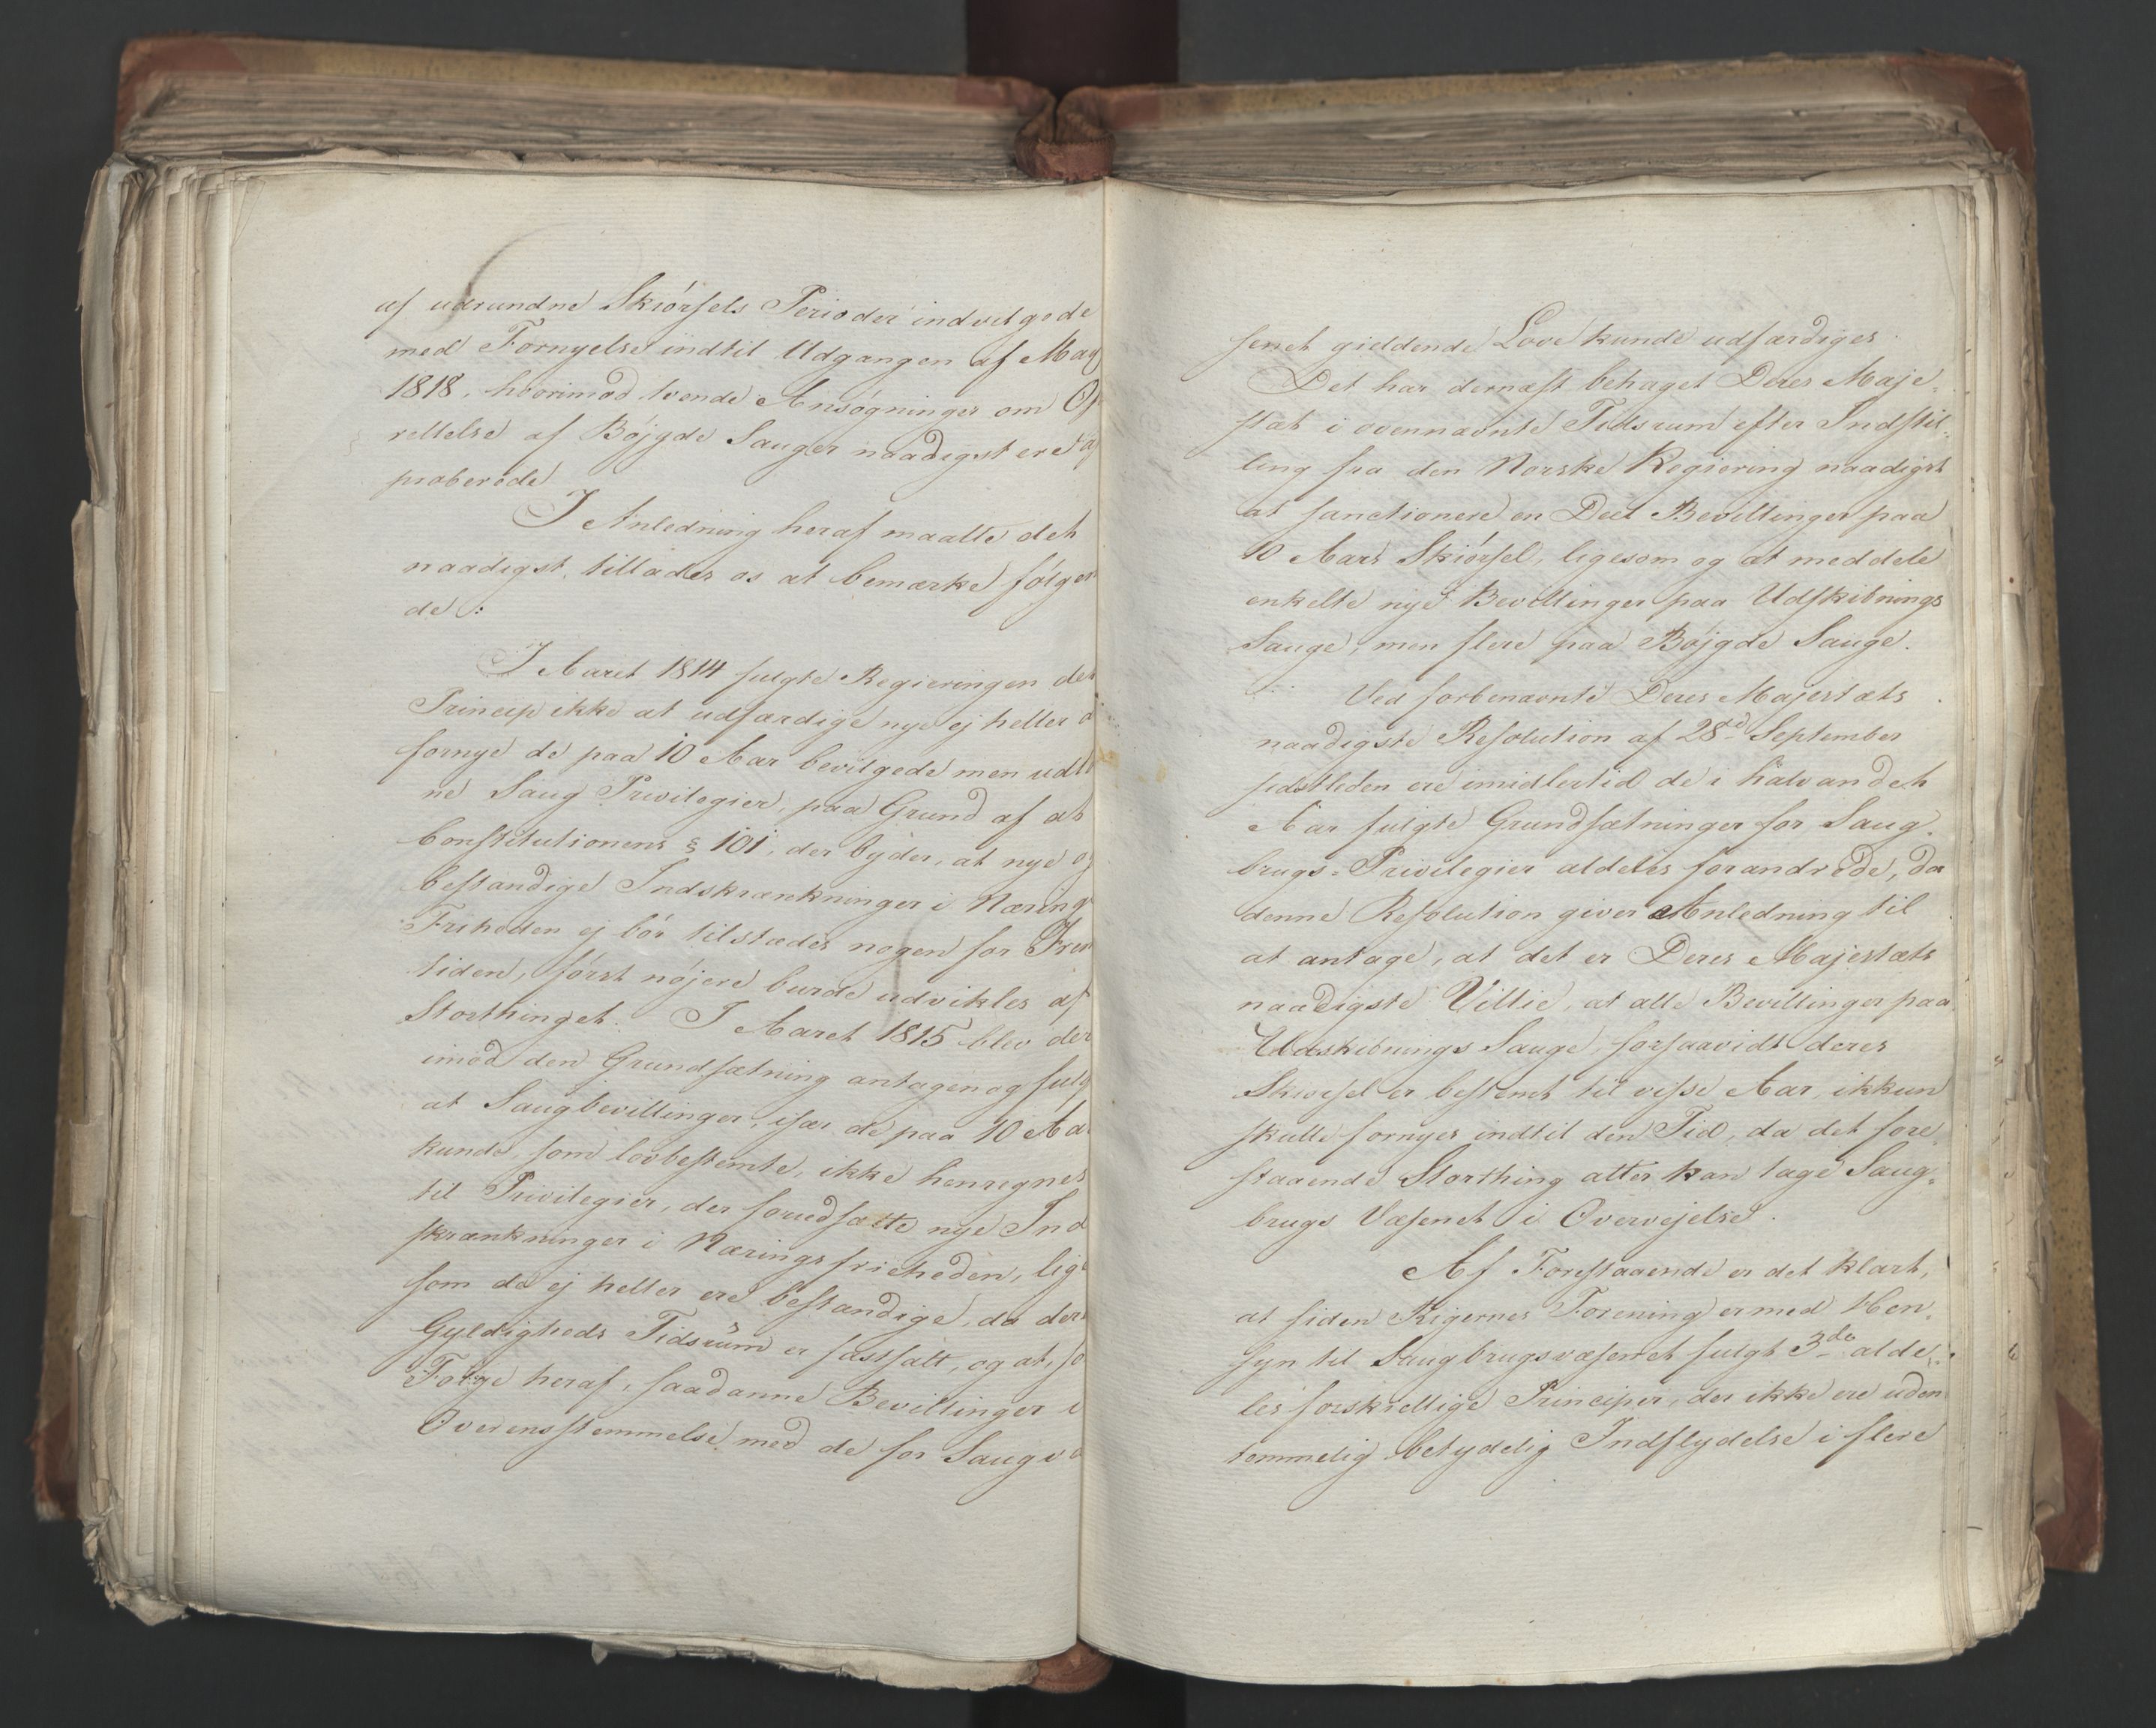 af udrundne Skiörsels Perioder indvilgede
med Fornyelse indtil Udgangen af May
1818, hvorimod tvende Ansøgninger om Op
rettelse af Bøjgde Sauger naadigst ere ap
proberede
I Anledning heraf maatte det
naadigst tillades os at bemærke følgen
de:
I Aaret 1814 fulgte Regieringen det
Princip ikke at udfærdige nye ej heller
fornye de paa 10 Aar bevilgede men udl
ne Saug Privilegier, paa Grund af at
Constitutionens § 101, der byder, at nye og
bestandige Indskrænkninger i Nærings
Friheden ej bör tilstædes nogen for Frem
tiden, först nøjere burde udvikles af
Storthinget. I Aaret 1815 blev der
imod den Grundsætning antagen og fulg
at Saugbevillinger, især de paa 10 Aa
kunde, som lovbestemte, ikke henregnes
til Privilegier, der forudsætte nye Ind
skrænkninger i Næringsfrieheden, lige
som de ej heller ere bestandige, da der
Gyldigheds Tidsrum er fastsatt, og at, so
Følge heraf, saadanne Bevillinger i
Overensstemmelse med de for Saugvæ
senet gieldende Love kunde udfærdiges.
Det har dernæst behaget Deres Maje-
stæt i ovennævnte Tidsrum efter Indstil-
ling fra den Norske Regiering naadigst
at sanctionere en Deel Bevillinger paa
10 Aars Skiørsel, ligesom og at meddele
enkelte nye Bevillinger paa Udskibnings
Sauge, men flere paa Bøjgde Sauge.
Ved forbenævnte Deres Majestæts
naadigste Resolution af 28de September
sidstleden ere imidlertid de i halvandet
Aar fulgte Grundsætninger for Saug-
brugs-Privilegier aldeles forandrede, da
denne Resolution giver Anledning til
at antage, at det er Deres Majestæts
naadigste Villie, at alle Bevillinger paa
Udskibnings Sauge, forsaavidt deres
Skiørsel er bestemt til visse Aar, ikkun
skulle fornyes indtil den Tid, da det fore-
staaende Storthing atter kan tage Saug-
brugs Væsenet i Overvejelse.
Af Forestaaende er det klart,
at siden Rigernes Forening er med Hen-
syn til Saugbrugsvæsenet fulgt 3de alde-
les forskiellige Principer, der ikke ere uden
temmelig betydelig Indflydelse i flere